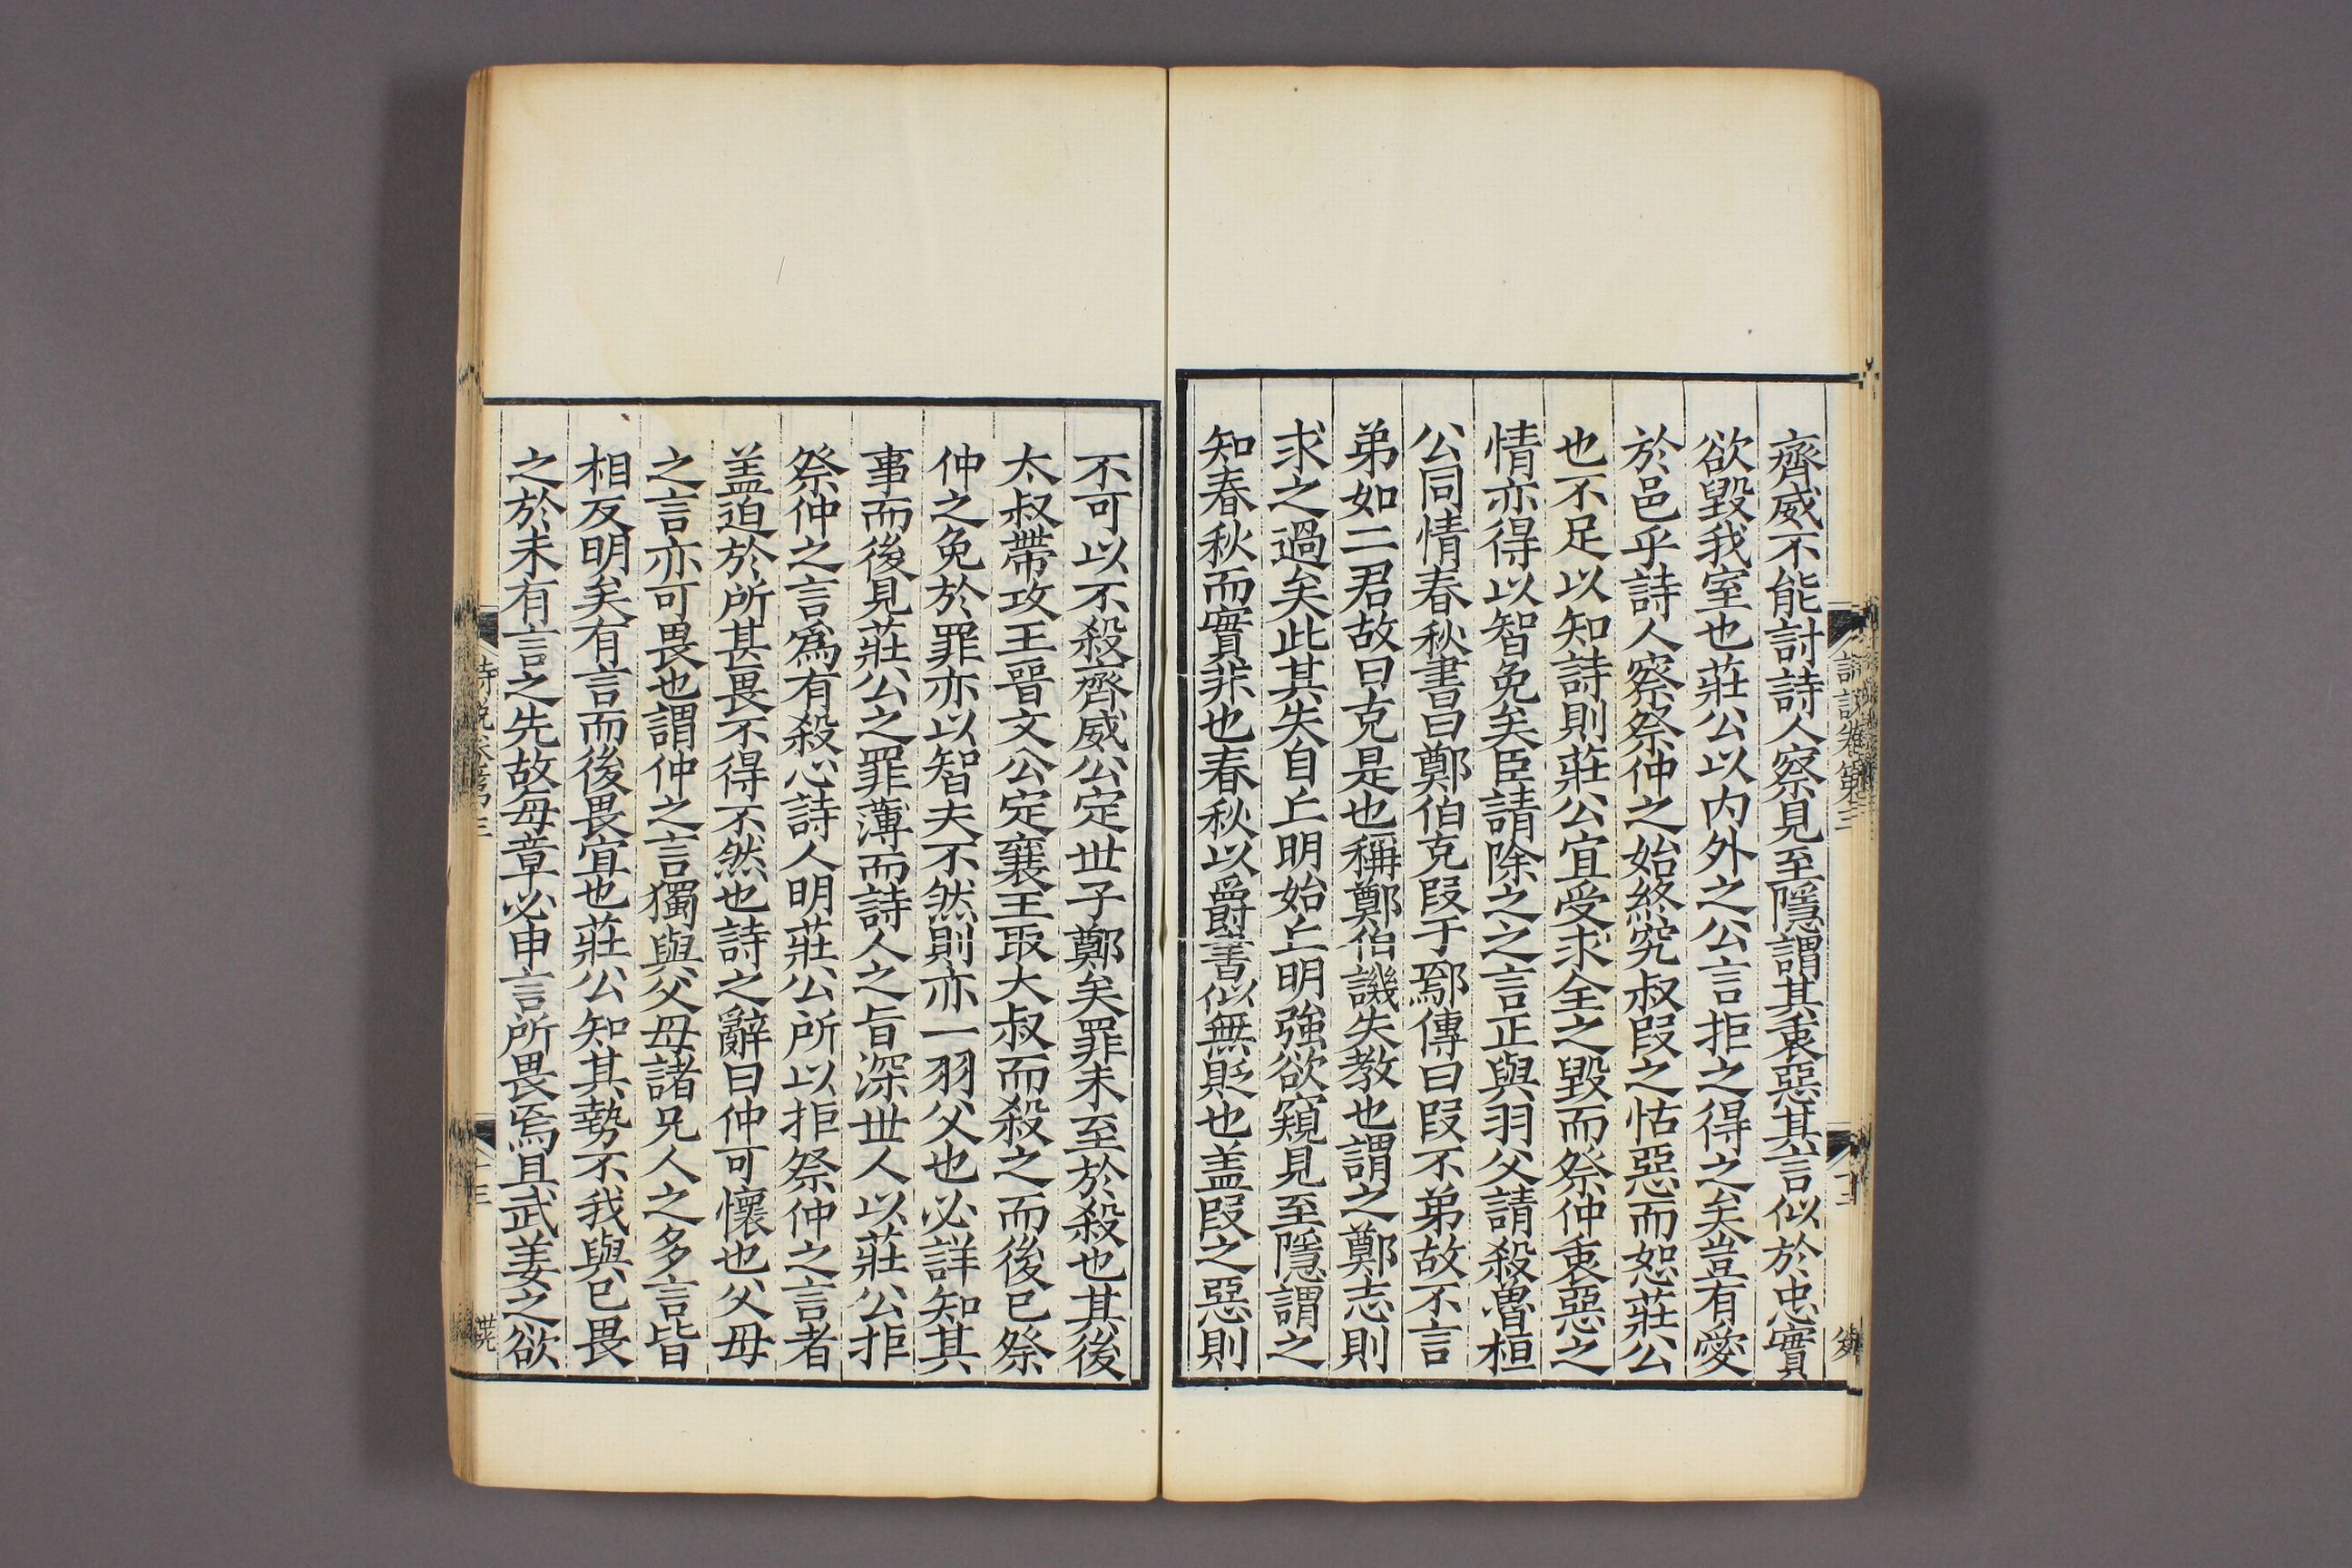 齊威不能討詩人察見至隱謂其衷惡其言似於忠實
欲毀我室也莊公以內外之公言拒之得之矣豈有愛
於邑乎詩人察祭仲之始終究叔叚之怙惡而恕莊公
也不足以知詩則莊公宜受求全之毀而祭仲衷惡之
情亦得以智免矣臣請除之之言正與羽父請殺魯桓
公同情春秋書曰鄭伯克叚于鄢傳曰叚不弟故不言
弟如二君故曰克是也稱鄭伯譏失教也謂之鄭志則
求之過矣此其失自丘明始丘明強欲窺見至隱謂之
知春秋而實非也春秋以爵書似無貶也盖叚之惡則
詩說卷第三
不可以不殺齊威公定世子鄭矣罪未至於殺也其後
太叔帶攻王晉文公定襄王取大叔而殺之而後已祭
仲之免於罪亦以智夫不然則亦一羽父也必詳知其
事而後見莊公之罪薄而詩人之旨深世人以莊公拒
祭仲之言爲有殺心詩人明莊公所以拒祭仲之言者
盖迫於所甚畏不得不然也詩之辭曰仲可懷也父母
之言亦可畏也謂仲之言獨與父母諸兄人之多言皆
相反明矣有言而後畏宜也莊公知其勢不我與已畏
之於未有言之先故每章必申言所畏焉且武姜之欲